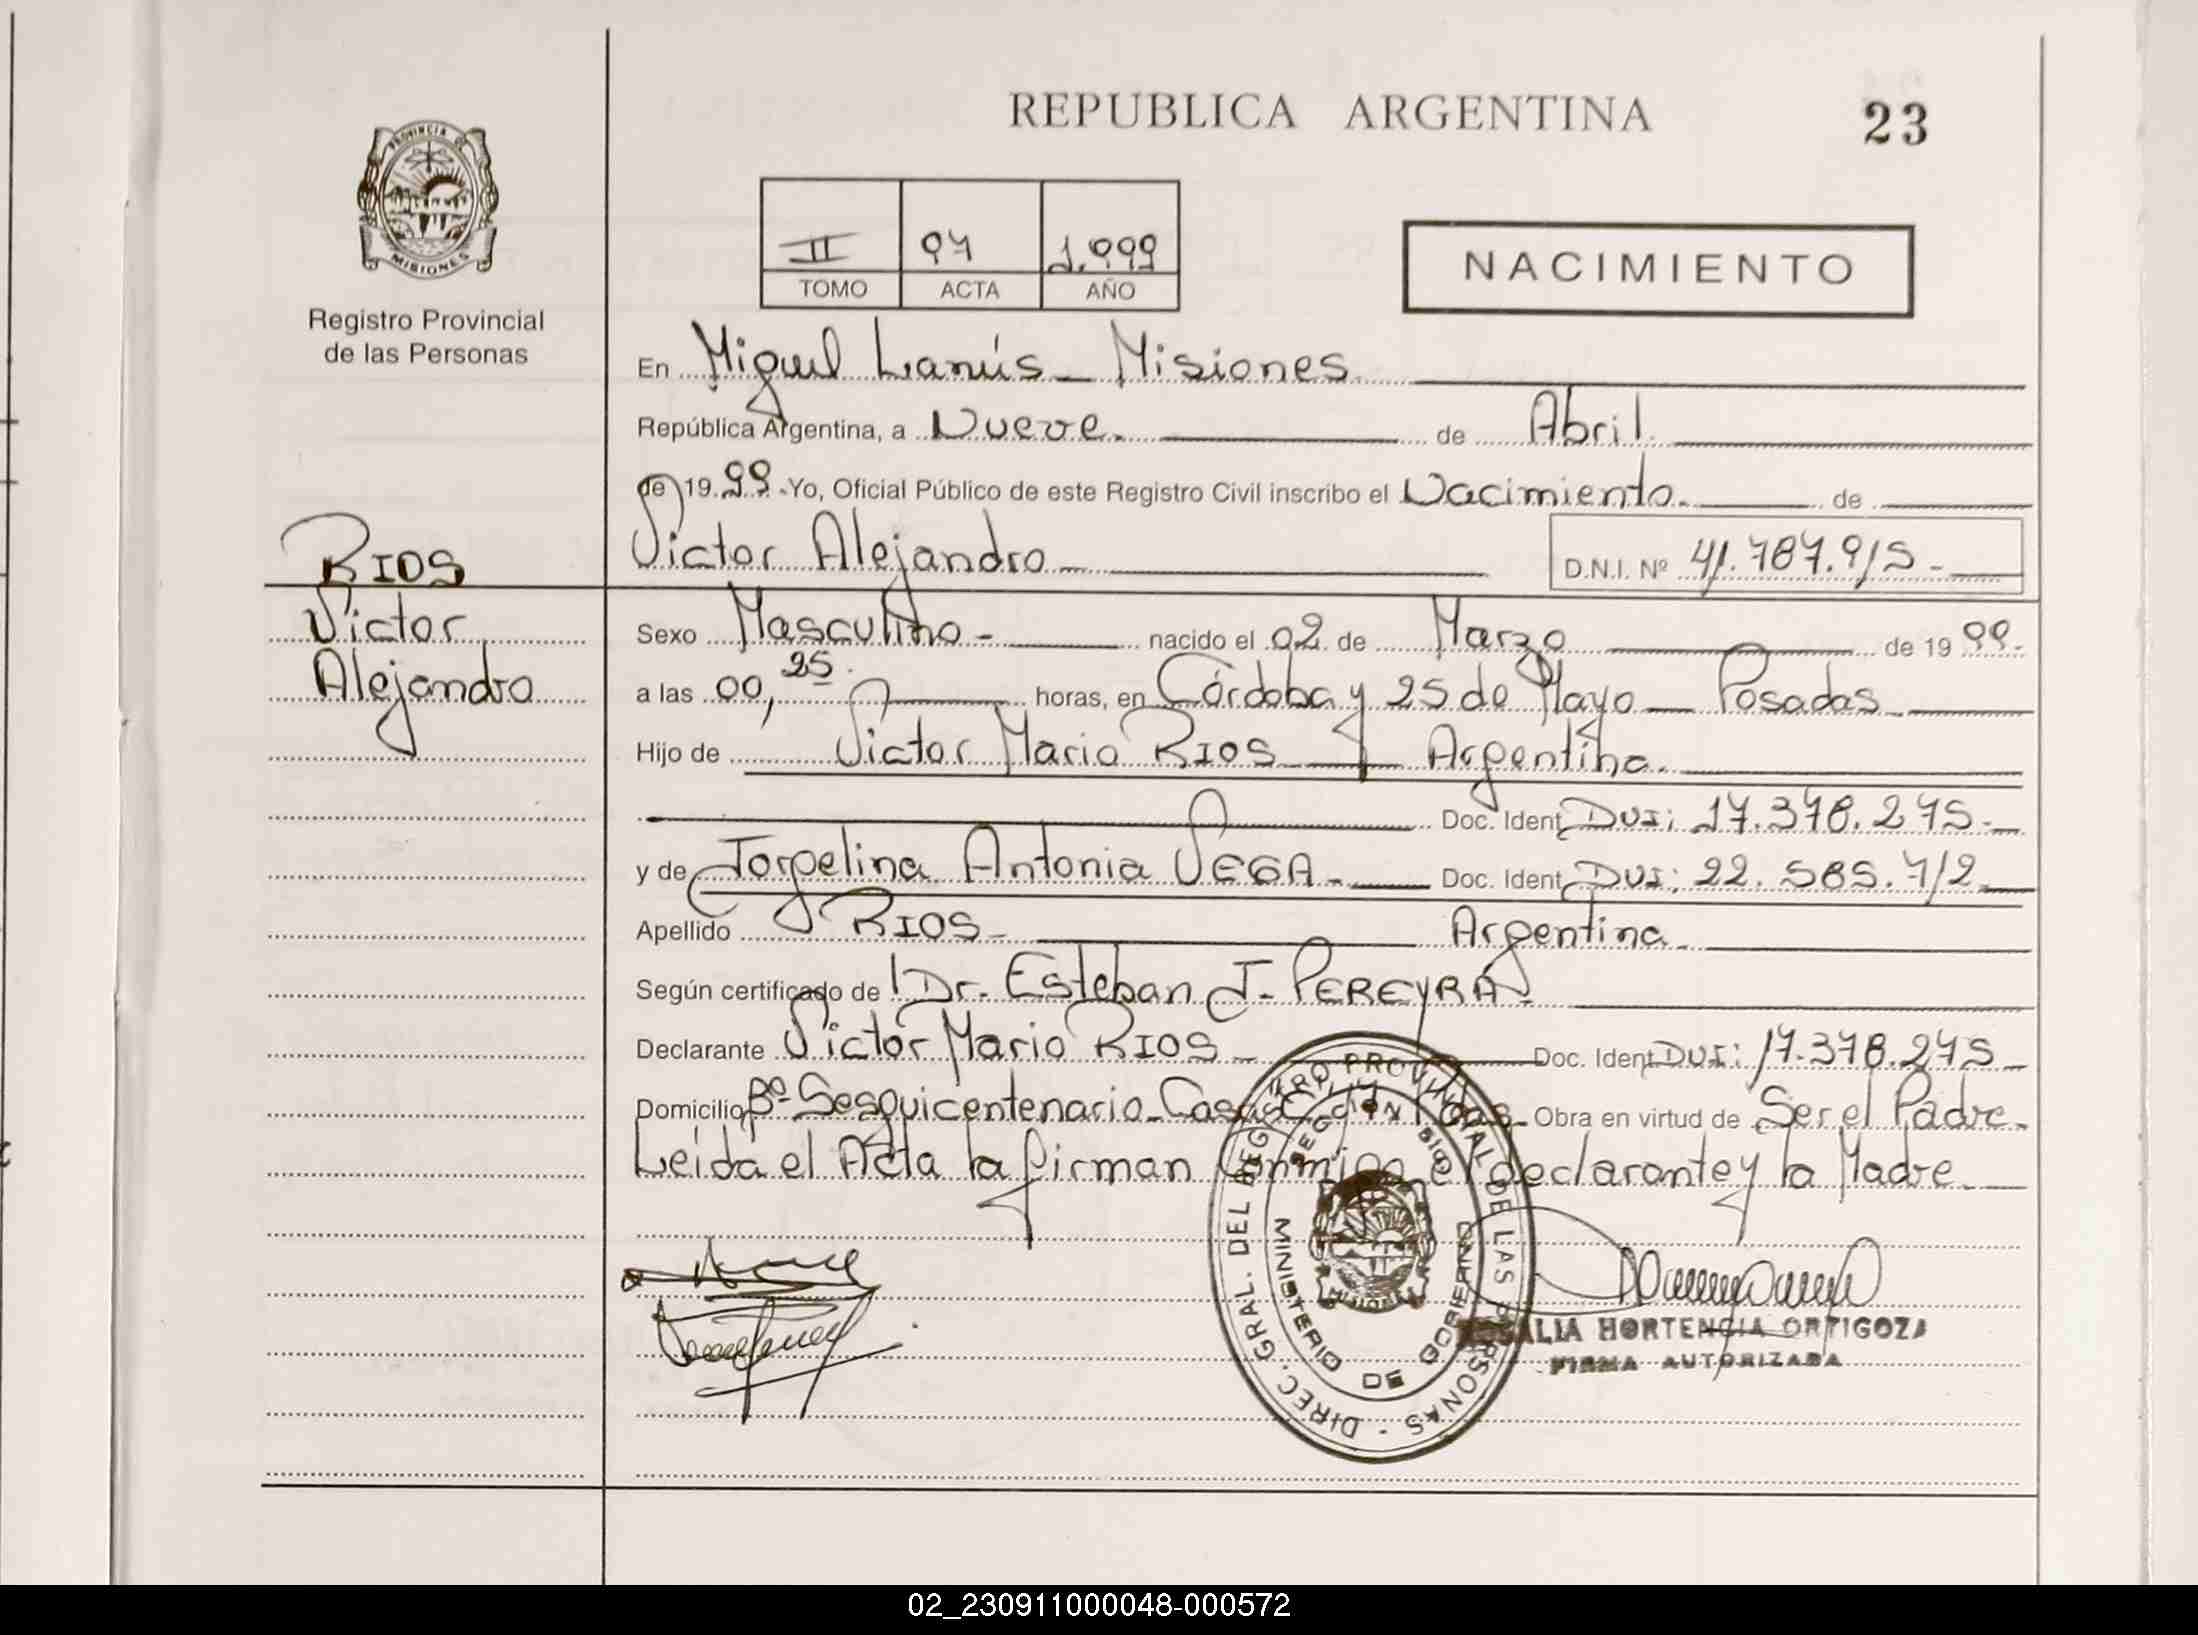 REPUBLICA ARGENTINA
23
PROVINCIA DE
MISIONES
Registro Provincial
de las Personas
II 97 1.999
TOMO ACTA AÑO
NACIMIENTO
En Miguel Lanús - Misiones
República Argentina, a Nueve. de Abril.
de 19 99 .Yo, Oficial Público de este Registro Civil inscribo el Nacimiento. de
Victor Alejandro
D.N.I. Nº 41.787.915.-
RIOS
Victor
Alejandro
Sexo Masculino - nacido el 02 de Marzo de 19 99.
a las 00,25. horas, en Córdoba y 25 de Mayo - Posadas.
Hijo de Victor Mario RIOS Argentina.
Doc. Ident. DNI: 17.378.275.-
y de Jorgelina Antonia VEGA. Doc. Ident. DNI: 22.585.712
Apellido RIOS - Argentina.
Según certificado de Dr. Esteban J. PEREYRA.
Declarante Victor Mario RIOS - Doc. Ident. DNI: 17.378.275 -
Domicilio Bº Sesquicentenario - Obra en virtud de Ser el Padre.
Leida el Acta la firman Conmigo el declarante y la Madre.
DIREC. GRAL. DEL REGISTRO PROVINCIAL DE LAS PERSONAS -
MINISTERIO DE GOBIERNO
HORTENCIA ORTIGOZA
FIRMA AUTORIZADA
02_230911000048-000572